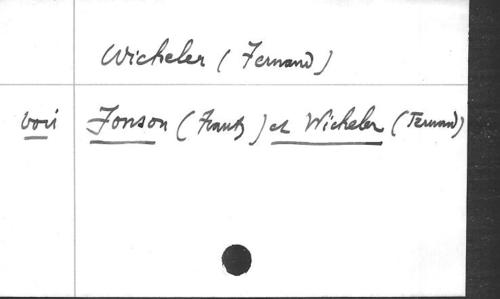 Wicheler (Fernand)
voir Jonson (Frantz) et Wicheler (Fernand)